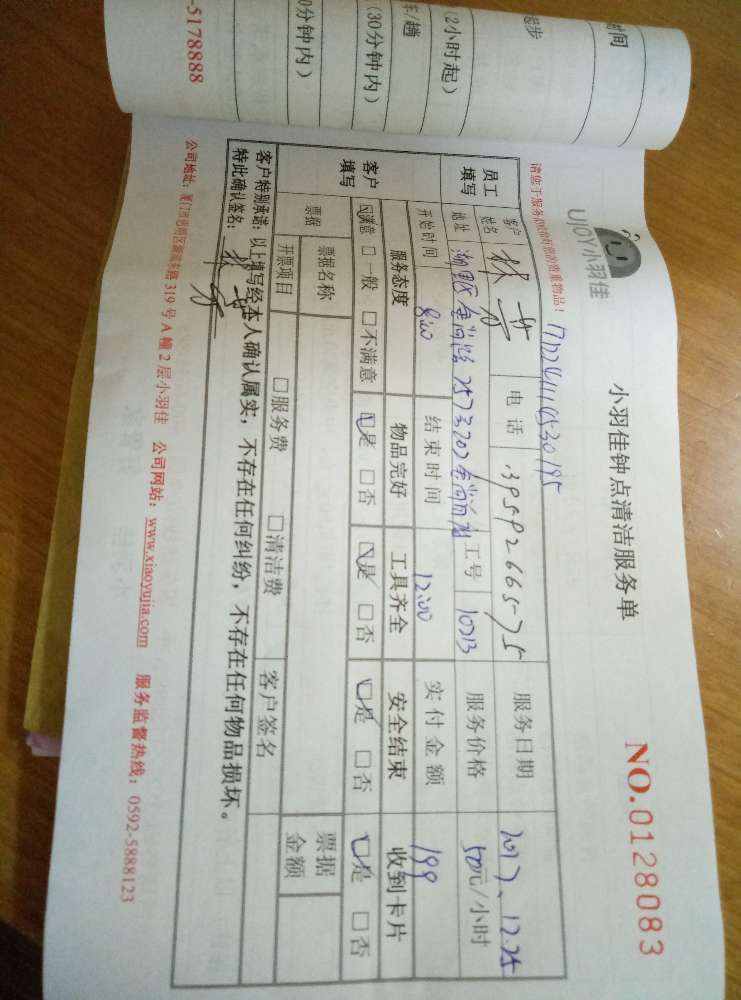 时间
起步
(2小时起)
车/趟
(30分钟内)
0分钟内)
-5178888
UJOY小羽佳
小羽佳钟点清洁服务单
NO.0128083
请您于服务前收好您的贵重物品!
员工填写
客户姓名
林
电话
服务日期
2017、12.25
地址
工号
10213
服务价格
50元/小时
开始时间
8:00
结束时间
12:00
实付金额
199
客户填写
服务态度
物品完好
工具齐全
安全结束
收到卡片
满意 □一般 □不满意
是 □否
是 □否
是 □否
是 □否
票据
票据名称
票据金额
开票项目
□服务费 □清洁费
客户签名
客户特别承诺:以上填写经本人确认属实,不存在任何纠纷,不存在任何物品损坏。
特此确认签名:林
319号A幢2层小羽佳 公司网站:www.xiaoyujia.com 服务监督热线:0592-5888123